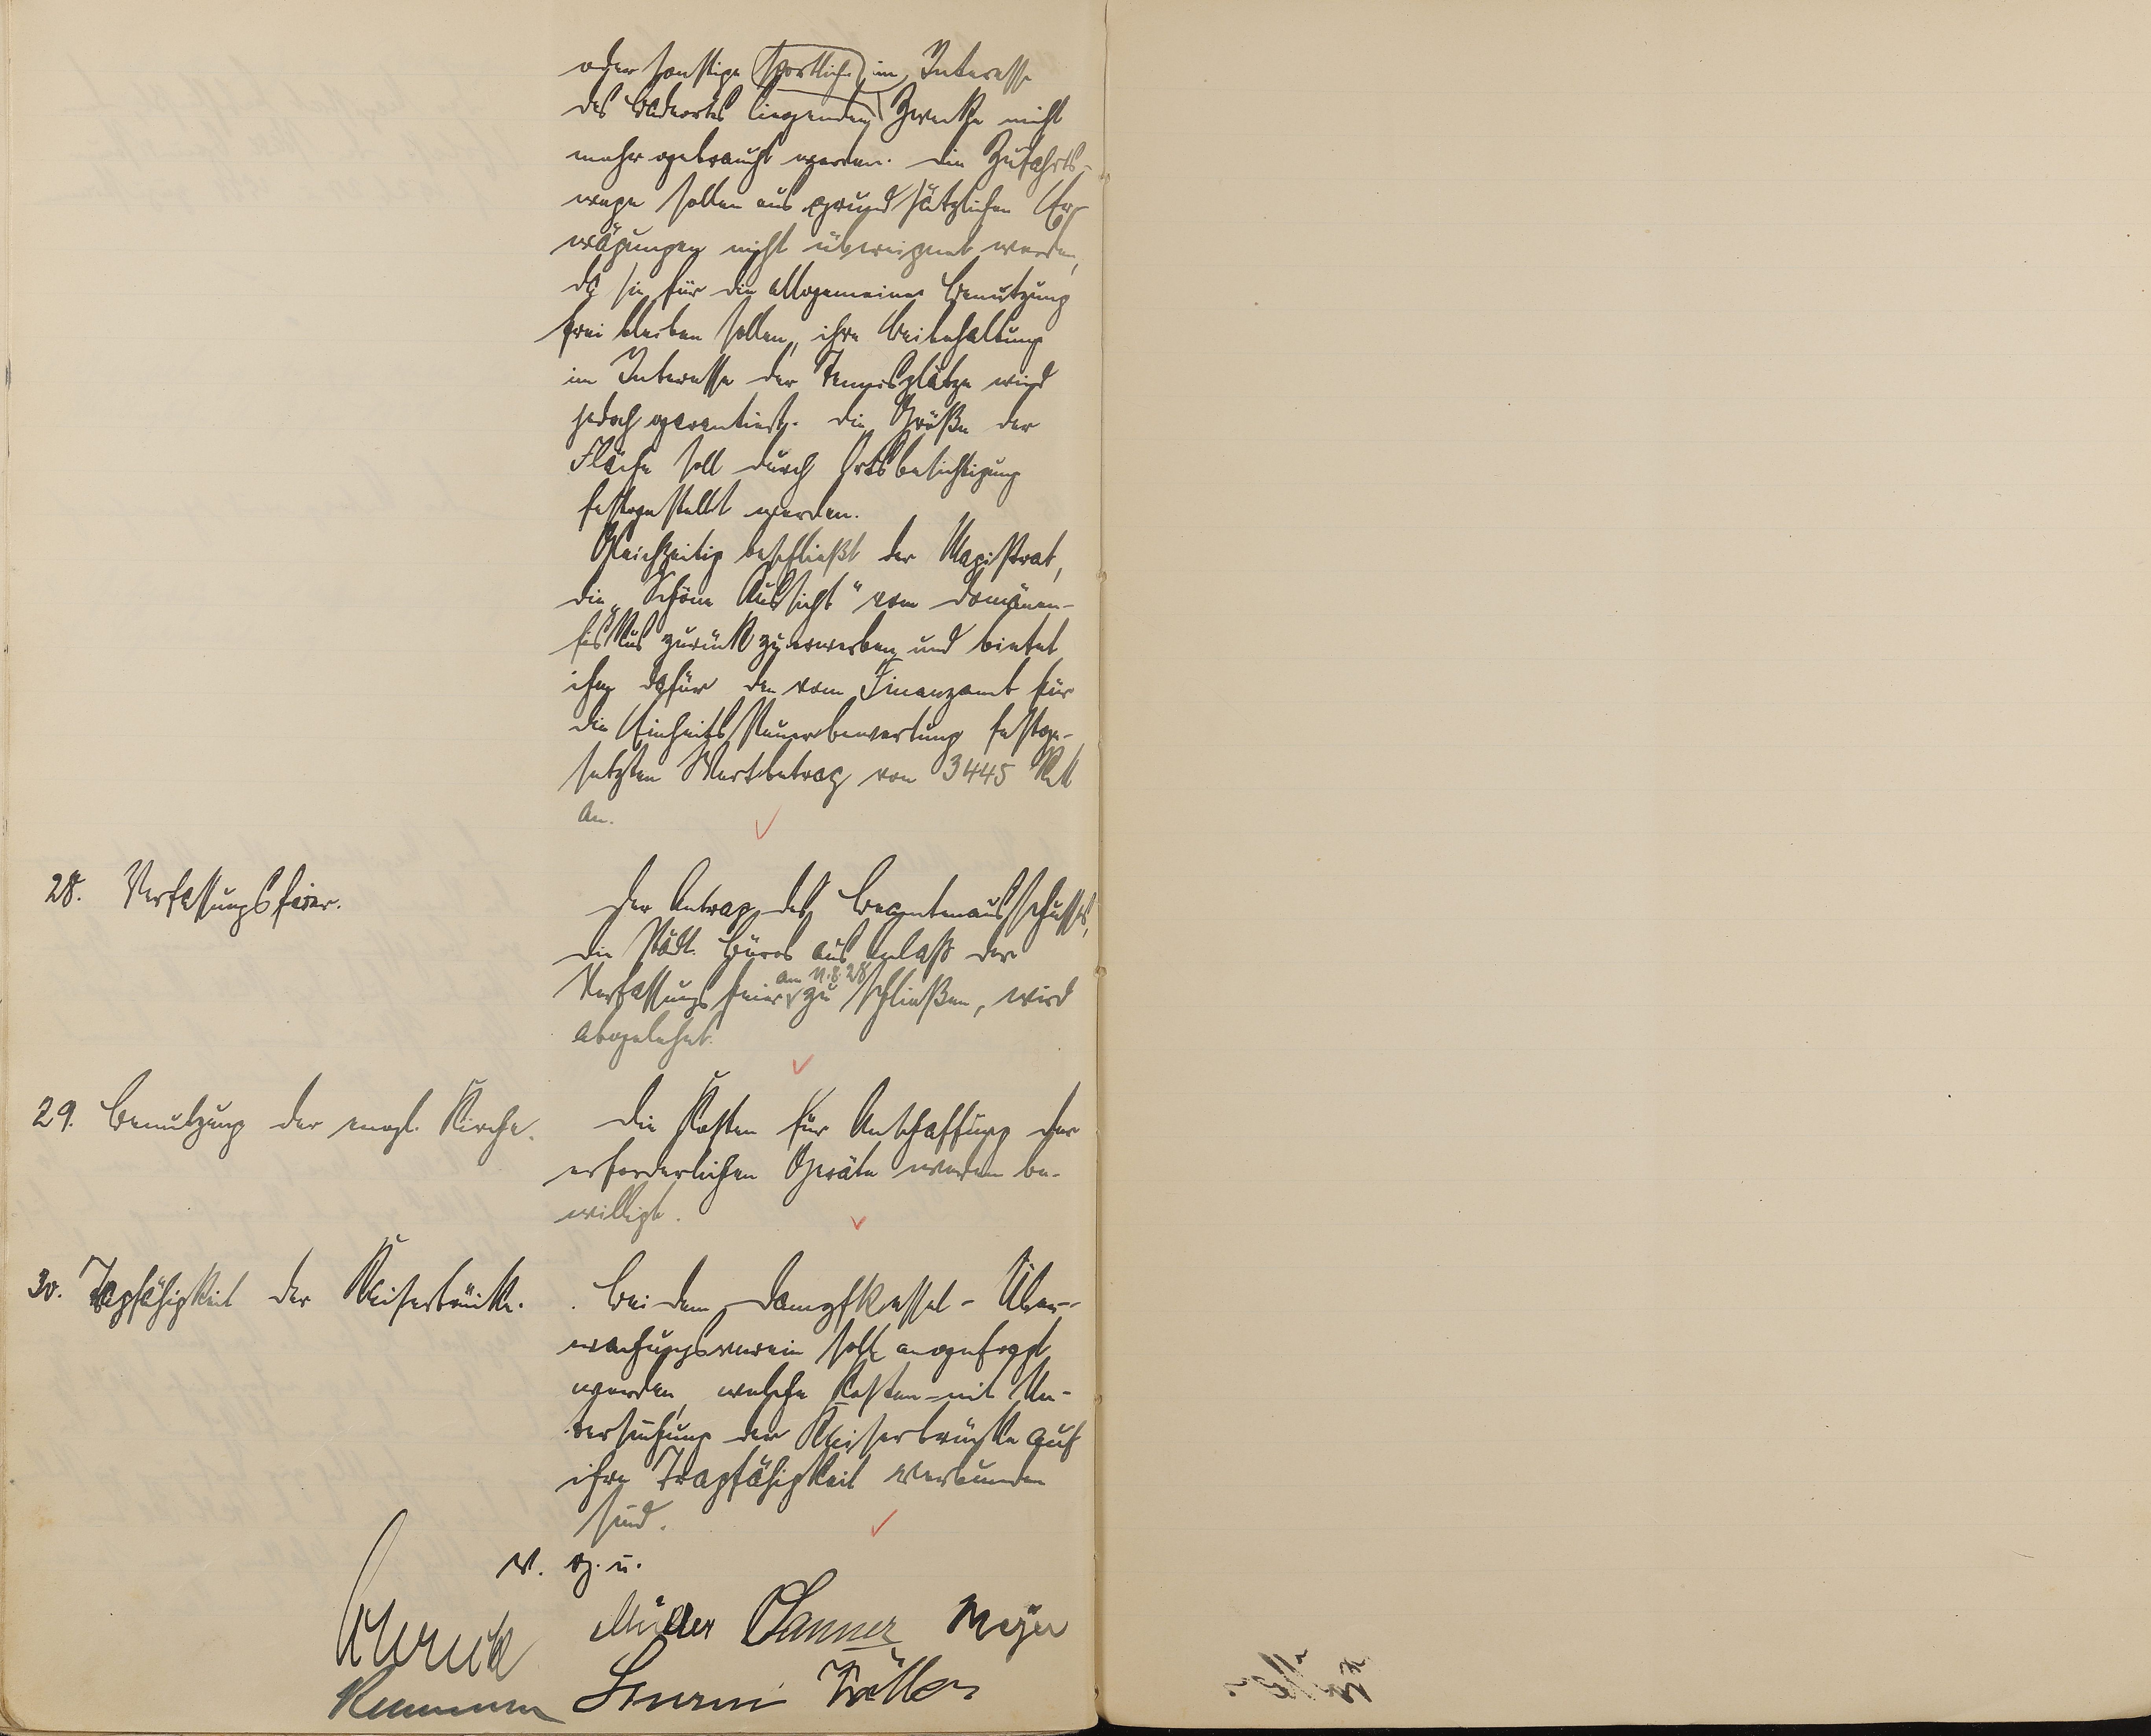 oder sonstige sportliche im Interesse
des Badeortes liegenden Zwecke nicht
mehr gebraucht werden. Die Zufahrts-
wege sollen aus grundsätzlichen Er-
wägungen nicht übereignet werden,
da sie für die Allgemeine Benutzung
frei bleiben sollen, ihre Beibehaltung
im Interesse der Tennisplätze wird
jedoch garantiert. Die Größe der
Fläche soll durch Ortsbesichtigung
festgestellt werden.
Gleichzeitig beschließt der Magistrat,
die „Schöne Aussicht" vom Domänen-
fiskus zurückzuerwerben und bietet
ihm dafür den vom Finanzamt für
die Einheitssteuerbewertung festge-
setzten Wertbetrag von 3445 RM
an.
28. Verfassungsfeier.
Der Antrag des Beamtenausschusses,
die städt. Büros aus Anlass der
Verfassungsfeier am 11.8.28 zu schließen, wird
abgelehnt.
29. Benutzung der engl. Kirche.
Die Kosten für Anschaffung der
erforderlichen Geräte werden be-
willigt.
30. Tragfähigkeit der Kaiserbrücke.
Bei dem Dampfkessel-Über-
wachungsverein soll angefragt
werden, welche Kosten mit Un-
tersuchung der Kaiserbrücke auf
ihre Tragfähigkeit verbunden
sind.
v. g. u.
Müller Meyer